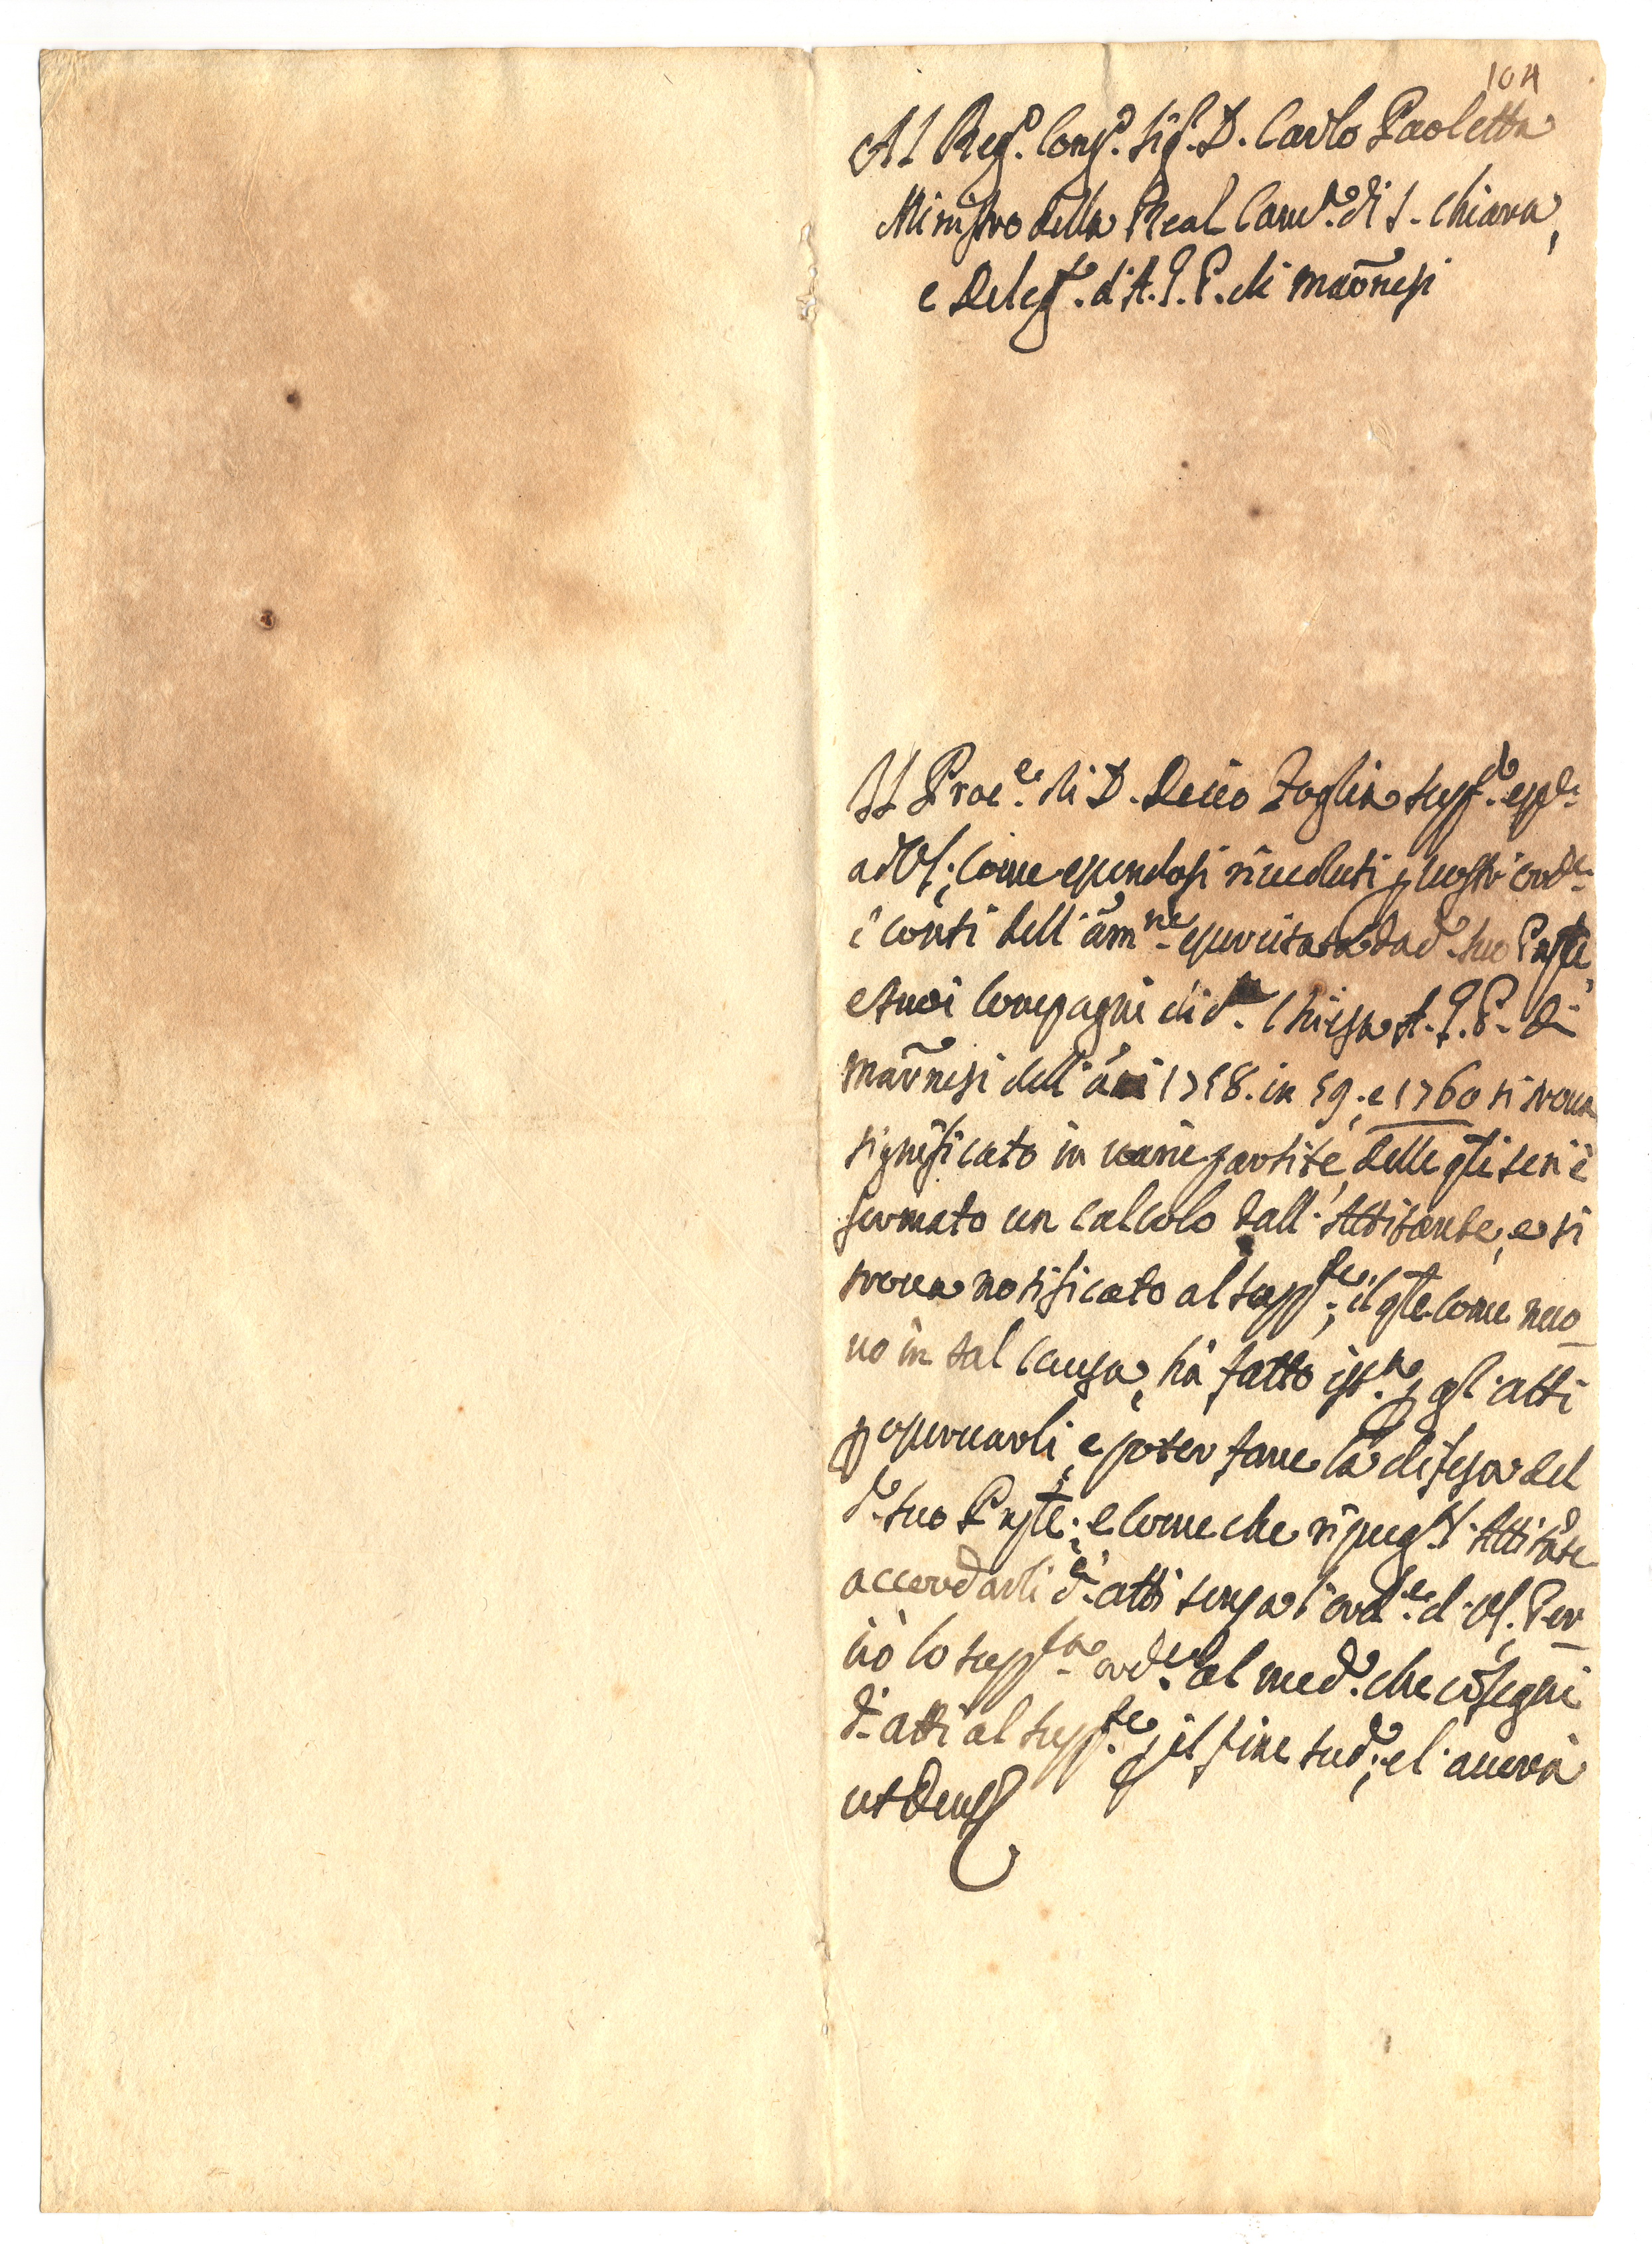 104
Al Reg.o Cons.o Sig.r D. Carlo Paoletta
Ministro della Real Cam.a di S. Chiara,
e Deleg.to d'A.G.P. di Maõnesi
Il Proc.e di D. Decio Foglia supp.te esp.e
ad V.S., come essendosi riveduti p vostri ord.i
i conti dell'ãm.ne esercitata da d.o suo Pñple,
e suoi Compagni di d.a Chiesa A.G.P. di
Maõnesi dell'ãni 1758. in 59; e 1760 si trova
significato in varie partite, delle qli se n'è
formato un calcolo dall'Attitante, e si
trova notificato al supp.te; il qle come nuo
vo in tal causa, hà fatto ist.a p gl'atti
p osservarli, e poter fare la difesa del
d.o suo Pñple; e come che ripug.a l'Attitãte
accordarli d.i atti senza l'ord.e d'V.S. Per
ciò lo supp.ca ord.e al med.o che cõsegni
d.i atti al supp.te p il fine sud.o; e l'averà
ut Deus